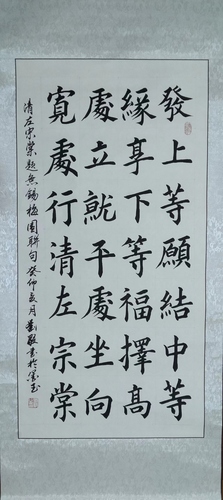 發上等願結中等
緣享下等福擇高
處立就平處坐向
寬處行清左宗棠
清左宗棠题無錫梅園聯句 癸卯夏月 書於